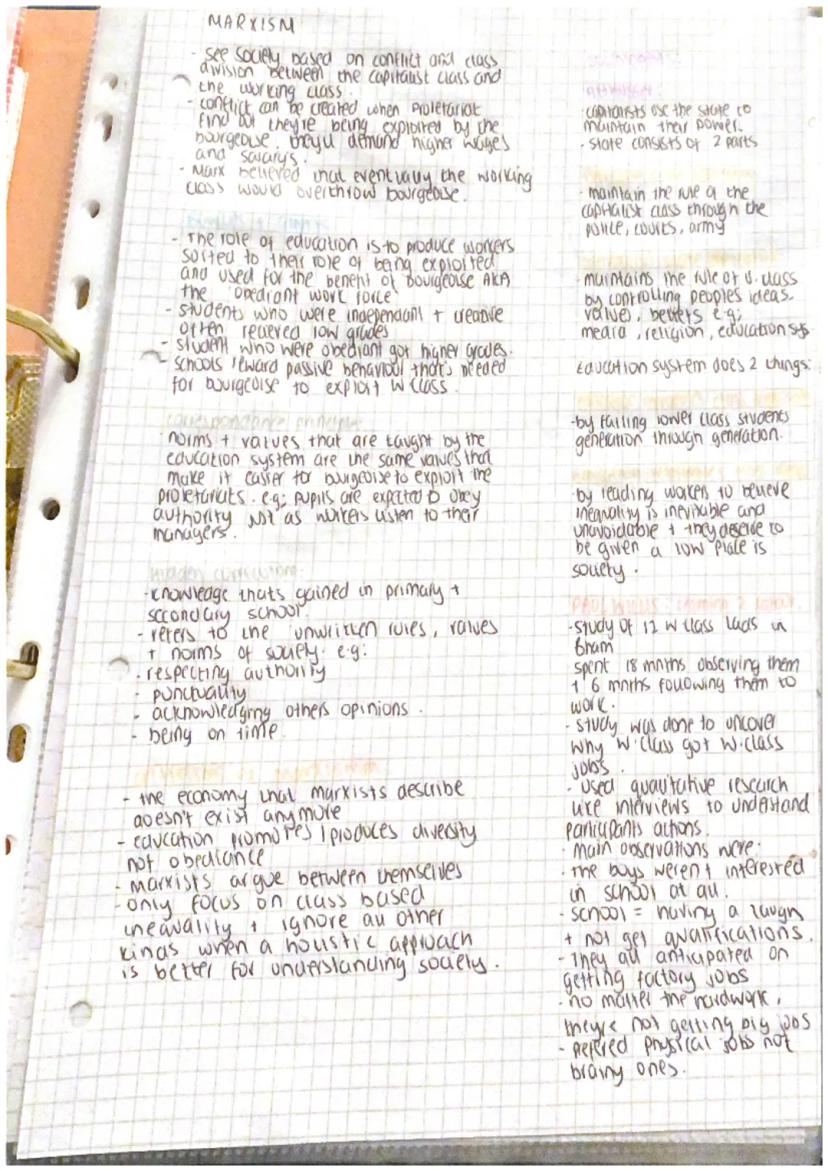 MARXISM
- see society based on conflict and class
division between the capitalist class and
the working class.
- conflict can be created when proletariat
find out they're being exploited by the
bourgeoise. they'll demand higher wages
and salarys.
- Marx believed that eventually the working
class would overthrow bourgeoise.
- The role of education is to produce workers
sorted to their role of being exploited
and used for the benefit of bourgeoise AKA
the 'obediant work force'
- students who were independant + creative
often recieved low grades
- student who were obediant got higher grades.
- schools reward passive behaviour that's needed
for bourgeoise to exploit w class.
correspondance principle
norms + values that are taught by the
education system are the same values that
make it easier for bourgeoise to exploit the
proletariats. e.g; pupils are expected to obey
authority just as workers listen to their
managers.
hidden curriculum:
- knowledge thats gained in primary +
secondary school.
- refers to the unwritten rules, values
+ norms of society. e.g:
- respecting authority
- punctuality
- acknowledging others opinions.
- being on time.
- the economy that marxists describe
doesn't exist anymore
- education promotes / produces diversity
not obediance
- marxists argue between themselves
- only focus on class based
inequality + ignore all other
kinds when a holistic approach
is better for understanding society.
- capitalists use the state to
maintain their power.
- state consists of 2 parts
- maintain the rule of the
capitalist class through the
police, courts, army
- maintains the rule of u. class
by controlling peoples ideas.
values, beliefs e.g;
media, religion, education sys.
Education system does 2 things:
- by failing lower class students
generation through generation.
- by leading workers to believe
inequality is inevitable and
unavoidable + they deserve to
be given a low place is
society.
PAUL WILLIS: learning 2 labour
- study of 12 w class lads in
Bham
spent 18 mnths observing them
+ 6 mnths following them to
work.
- study was done to uncover
why w.class got w.class
jobs.
- used qualitative research
like interviews to understand
participants actions.
- main observations were:
- the boys weren't interested
in school at all.
- school = having a laugh
+ not get qualifications.
- They all anticipated on
getting factory jobs
- no matter the hardwork,
theyre not getting big jobs
- prefered physical jobs not
brainy ones.